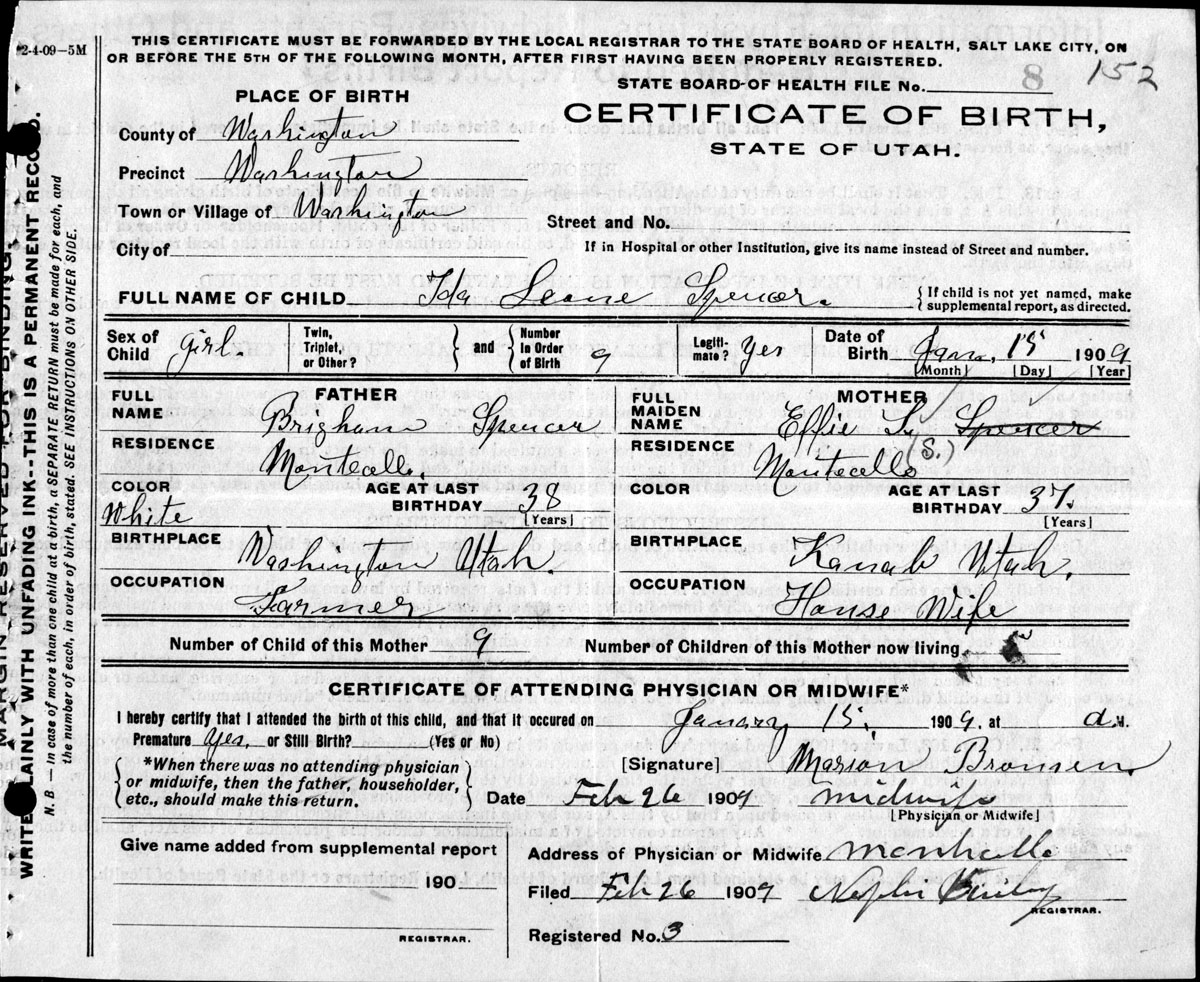 2-4-09—5M
THIS CERTIFICATE MUST BE FORWARDED BY THE LOCAL REGISTRAR TO THE STATE BOARD OF HEALTH, SALT LAKE CITY, ON
OR BEFORE THE 5TH OF THE FOLLOWING MONTH, AFTER FIRST HAVING BEEN PROPERLY REGISTERED.
8 152
STATE BOARD OF HEALTH FILE No.
PLACE OF BIRTH
CERTIFICATE OF BIRTH,
STATE OF UTAH.
County of Washington
Precinct Washington
Town or Village of Washington
Street and No.
City of
If in Hospital or other Institution, give its name instead of Street and number.
FULL NAME OF CHILD Ida Leone Spencer {If child is not yet named, make
supplemental report, as directed.
Sex of Child girl
Twin, Triplet, or Other? } and { Number in Order of Birth 9
Legiti-mate? Yes
Date of Birth Jan. 15 1909
[Month] [Day] [Year]
FATHER
FULL NAME Brigham Spencer
RESIDENCE Monticello
COLOR White
AGE AT LAST BIRTHDAY 38
[Years]
BIRTHPLACE Washington Utah.
OCCUPATION Farmer
MOTHER
FULL MAIDEN NAME Effie Spencer
(S.)
RESIDENCE Monticello
COLOR
AGE AT LAST BIRTHDAY 37
[Years]
BIRTHPLACE Kanab Utah.
OCCUPATION House Wife
Number of Child of this Mother 9 Number of Children of this Mother now living
CERTIFICATE OF ATTENDING PHYSICIAN OR MIDWIFE*
I hereby certify that I attended the birth of this child, and that it occured on January 15. 1909. at M.
Premature Yes. or Still Birth? (Yes or No)
{*When there was no attending physician
or midwife, then the father, householder,
etc., should make this return.}
[Signature] Marion Bronson
Date Feb 26 1909 midwife
[Physician or Midwife]
Give name added from supplemental report
190
REGISTRAR.
Address of Physician or Midwife Monticello
Filed Feb 26 1909 Nephi
REGISTRAR.
Registered No. 3
MARGIN RESERVED FOR BINDING.
WRITE PLAINLY WITH UNFADING INK--THIS IS A PERMANENT RECORD.
N. B. — In case of more than one child at a birth, a SEPARATE RETURN must be made for each, and
the number of each, in order of birth, stated. SEE INSTRUCTIONS ON OTHER SIDE.